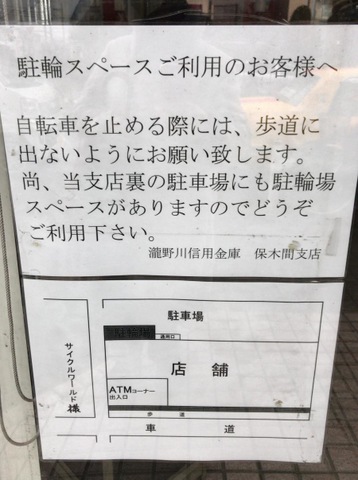 駐輪スペースご利用のお客様へ
自転車を止める際には、歩道に
出ないようにお願い致します。
尚、当支店裏の駐車場にも駐輪場
スペースがありますのでどうぞ
ご利用下さい。
瀧野川信用金庫 保木間支店
駐車場
駐輪場
通用口
サイクルワールド様
店舗
ATMコーナー
出入口
歩道
車道